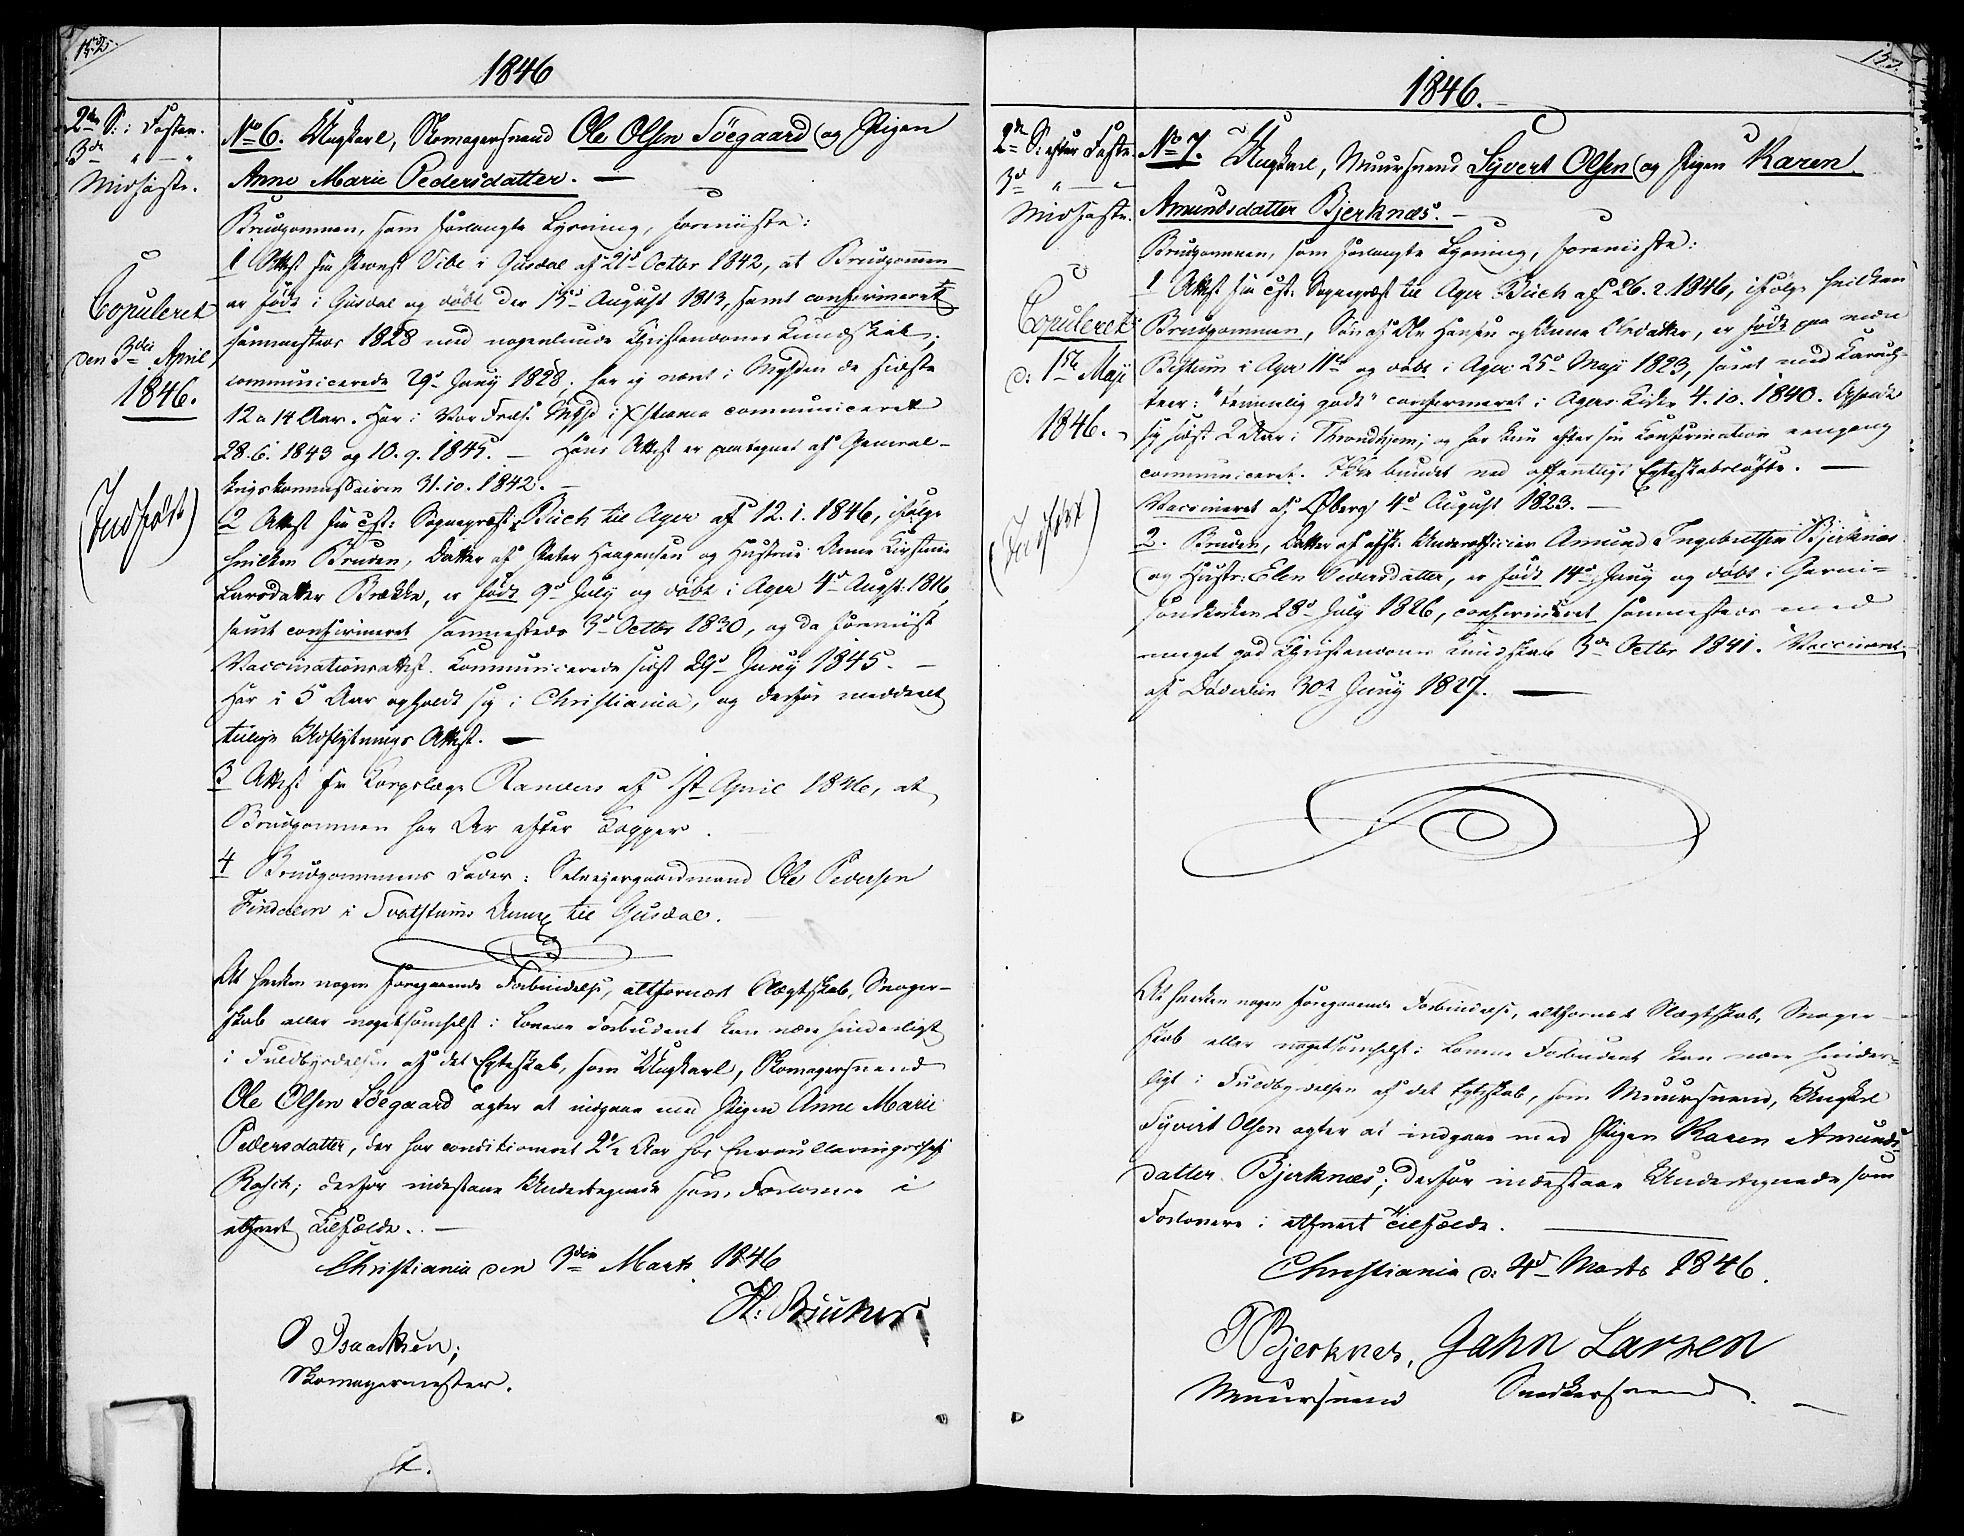 152.
1846
2den S: i Fasten.
3de " — "
Midfaste.
Copuleret
den 3die April
1846.
(Indført)
No 6. Ungkarl, Skomagersvend Ole Olsen Söegaard og Pigen
Anne Marie Pedersdatter. —
Brudgommen, som forlangte Lysning, foreviiste:
1 Attest fra Provst Vibe i Gusdal af 21de Octbr 1842, at Brudgommen
er född i Gusdal og döbt der 15de August 1813, samt confirmeret
sammesteds 1828 med nogenlunde Christendoms Kundskab;
communicerede 29de Juny 1828. har ej været i Bygden de sidste
12 a 14 Aar. Har i Vor Frels. Kirke i Xstiania communiceret
28.6.1843 og 10.9.1845. — Hans Attest er paategnet af General-
krigskommissairen 31.10.1842. —
2 Attest fra cst: Sognepræst Buch til Ager af 12.1.1846, ifølge
hvilken Bruden, Datter af Peter Haagensen og Hustrue Anne Kirstine
Larsdatter Brække, er född 9de July og döbt i Ager 4de Augst: 1816,
samt confirmeret sammesteds 3de Octbr 1830, og da foreviist
Vaccinationsattest. Kommunicerede sidst 29de Juny 1845. —
Har i 5 Aar opholdt sig i Christiania, og derfor meddeelt
Udflytnings Attest. —
3 Attest fra Korpslæge Randers af 1st April 1846, at
Brudgommen har Ar efter Kopper.
4 Brudgommens Fader: Selveiergaardmand Ole Pedersen
i Svatsum Annex til Gusdal.
At hverken nogen foregaaende Forbindelse, altfornær Slægtskab, Svoger-
skab eller nogetsomhelst i Lovene Forbudent kan være hinderligt
i Fuldbyrdelsen af det Egteskab, som Ungkarl, Skomagersvend
Ole Olsen Söegaard agter at indgaae med Pigen Anne Marie
Pedersdatter, der har conditioneret 2½ Aar hos
Rasch; derfor indestaae Undertegnede som Forlovere i
ethvert Tilfælde. —
Christiania den 3die Marts 1846
H: Bruker
O Isaachsen,
Skomagermester.
153.
1846.
2de S: efter Faste.
3de " — "
Midfaste.
Copuleret
d: 1ste Maji
1846.
(Indført)
No 7. Ungkarl, Muursvend Syvert Olsen og Pigen Karen
Amundsdatter Bjerknæs. —
Brudgommen, som forlangte Lysning, foreviste:
1 Attest fra cst: Sognepræst til Ager Buch af 26.2.1846, ifölge hvilken
Brudgommen, Sön af Ole Hansen og Anne Olsdatter, er född paa
i Ager 11te og döbt i Ager 25de Maji 1823, samt med Karac-
teer: "temmelig godt" confirmeret i Agers Kirke 4.10.1840. Opholdt
sig sidst 2 Aar i Throndhjem; og har kun efter sin Confirmation eengang
communiceret. Ikke bundet ved offentligt Egteskabsløfte. —
Vaccineret af Öberg 4de August 1823. —
2. Bruden, Datter af afsk. Underofficier Amund Ingebretsen Bjerknæs
og Hustr: Elen Pedersdatter, er född 14de Juny og döbt i Garni-
sonskirken 28de July 1826, confirmeret sammesteds med
meget god Christendoms Kundskab 3de Octbr 1841. Vaccineret
af Döderlein 30te Juny 1827. —
At hverken nogen foregaaende Forbindelse, altfornær Slægtskab, Svoger-
skab eller nogetsomhelst i Lovene Forbudent kan være hinder-
ligt i Fuldbyrdelsen af det Egteskab, som Muursvend, Ungkarl
Syvert Olsen agter at indgaae med Pigen Karen Amunds-
datter Bjerknæs; derfor indestaae Undertegnede som
Forlovere i ethvert Tilfælde.
Christiania d: 4de Marts 1846.
Bjerknes, Jahn Larsen
Muursvend Snedkersvend.